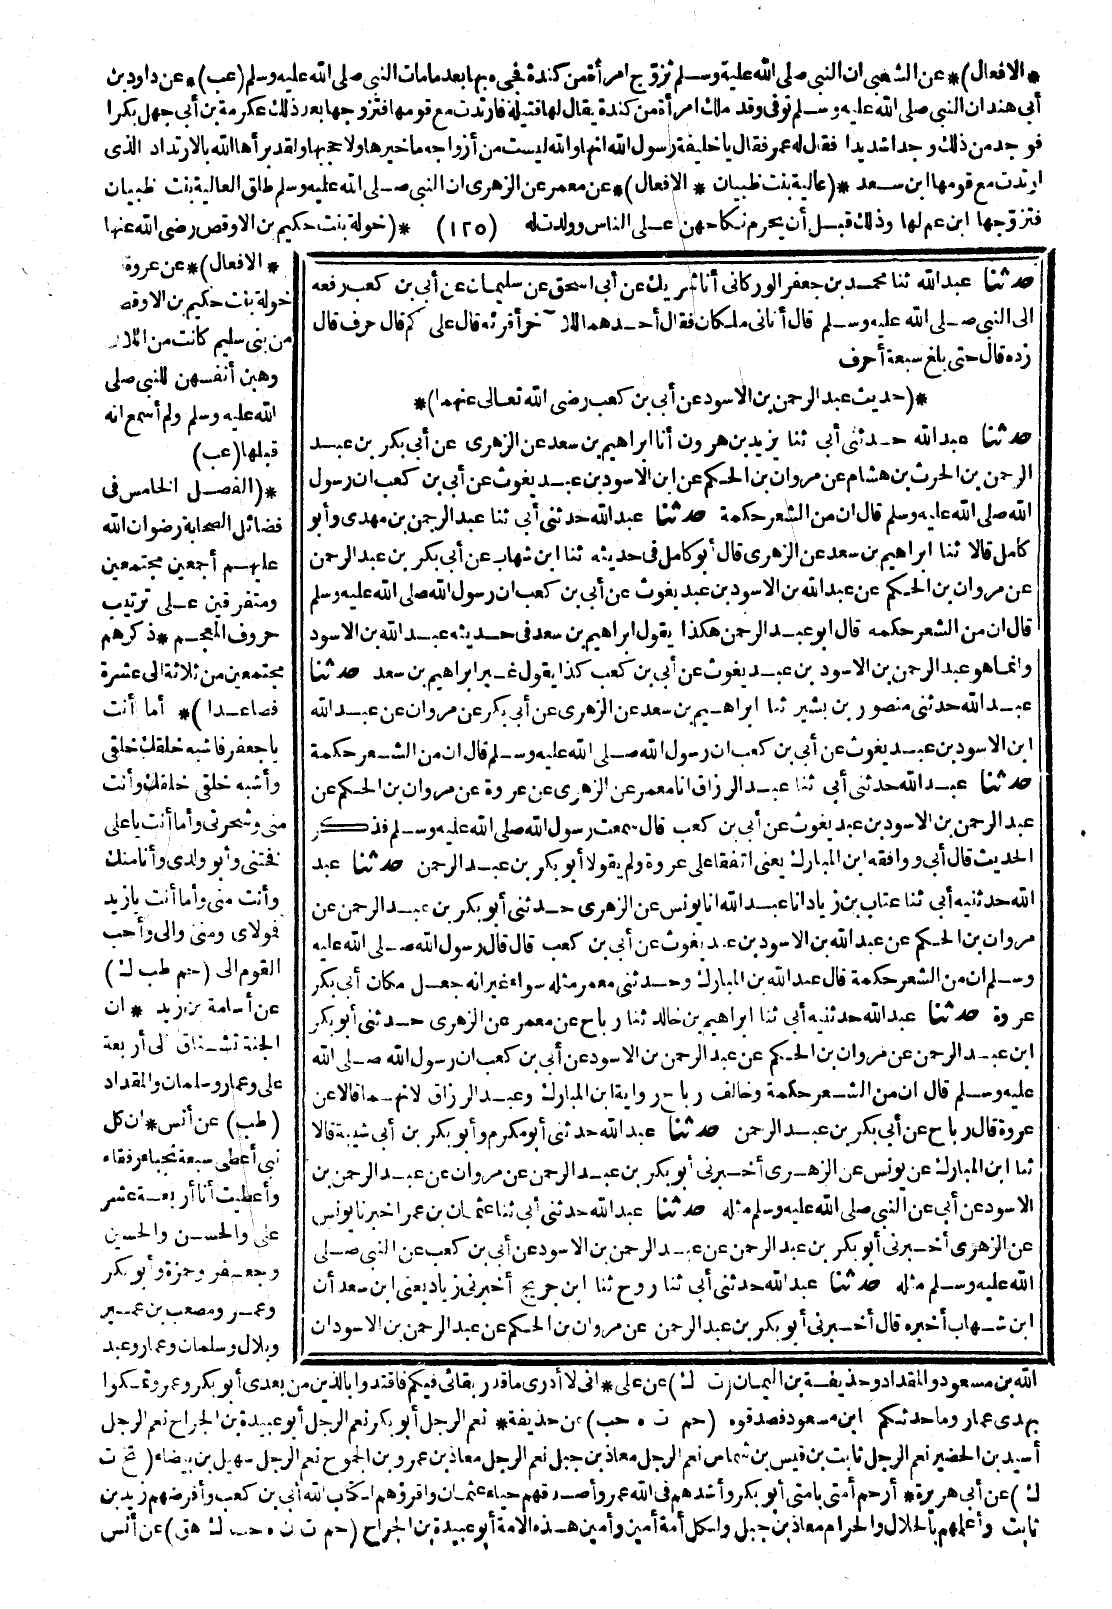 * الافعال)* عن الشعبي ان النبي صلى الله عليه وسلم تزوج امرأة من كندة فجيء بها بعد مامات النبي صلى الله عليه وسلم (عب)* عن داود بن
أبي هند ان النبي صلى الله عليه وسلم توفي وقد ملك امرأة من كندة يقال لها قتيلة فارتدت مع قومها فتزوجها بعد ذلك عكرمة بن أبي جهل بكرا
فوجد من ذلك وجدا شديدا فقال له عمر فقال يا خليفة رسول الله انها والله ليست من أزواجه ما خيرها ولا حجبها ولقد برأها الله بالارتداد الذى
ارتدت مع قومها ابن سعد *(عالية بنت ظبيان * الافعال)* عن معمر عن الزهرى ان النبي صلى الله عليه وسلم طلق العالية بنت ظبيان
فتزوجها ابن عم لها وذلك قبل أن يحرم نكاحهن على الناس وولدت له (١٢٥) *(خولة بنت حكيم بن الاوقص رضى الله عنها
* الافعال)* عن عروة
خولة بنت حكيم بن الاوقص
من بنى سليم كانت من اللاتى
وهبن أنفسهن للنبي صلى
الله عليه وسلم ولم أسمع انه
قبلها (عب)
*(الفصل الخامس فى
فضائل الصحابة رضوان الله
عليهم أجمعين مجتمعين
ومتفرقين على ترتيب
حروف المعجم * ذكرهم
مجتمعين من ثلاثة الى عشرة
فصاعدا)* أما أنت
ياجعفر فاشبه خلقك خلقى
وأشبه خلقى خلقك وأنت
منى وشجرتى وأما أنت ياعلى
فختنى وأبو ولدى وأنا منك
وأنت منى وأما أنت يازيد
فولاى ومنى والى وأحب
القوم الى (حم طب ك)
عن أسامة بن زيد * ان
الجنة تشتاق الى أربعة
على وعمار وسلمان والمقداد
(طب) عن أنس * ان كل
نبى أعطى سبعة نجباء رفقاء
وأعطيت أنا أربعة عشر
على والحسن والحسين
وجعفر وحمزة وأبو بكر
وعمر ومصعب بن عمير
وبلال وسلمان وعمار وعبد
حدثنا عبد الله ثنا محمد بن جعفر الوركانى أنا شريك عن أبى اسحق عن سليمان عن أبى بن كعب رفعه
الى النبي صلى الله عليه وسلم قال أتانى ملكان فقال أحدهما للآخر أقرئه قال على كم قال حرف قال
زده قال حتى بلغ سبعة أحرف
*(حديث عبد الرحمن بن الاسود عن أبى بن كعب رضى الله تعالى عنهما)*
حدثنا عبد الله حدثنى أبى ثنا يزيد بن هرون أنا ابراهيم بن سعد عن الزهرى عن أبى بكر بن عبد
الرحمن بن الحرث بن هشام عن مروان بن الحكم عن ابن الاسود بن عبد يغوث عن أبى بن كعب ان رسول
الله صلى الله عليه وسلم قال ان من الشعر حكمة حدثنا عبد الله حدثنى أبى ثنا عبد الرحمن بن مهدى وأبو
كامل قالا ثنا ابراهيم بن سعد عن الزهرى قال أبو كامل فى حديثه ثنا ابن شهاب عن أبى بكر بن عبد الرحمن
عن مروان بن الحكم عن عبد الله بن الاسود بن عبد يغوث عن أبى بن كعب ان رسول الله صلى الله عليه وسلم
قال ان من الشعر حكمه قال ابو عبد الرحمن هكذا يقول ابراهيم بن سعد فى حديثه عبد الله بن الاسود
وانما هو عبد الرحمن بن الاسود بن عبد يغوث عن أبى بن كعب كذا يقول غير ابراهيم بن سعد حدثنا
عبد الله حدثنى منصور بن بشير ثنا ابراهيم بن سعد عن الزهرى عن أبى بكر عن مروان عن عبد الله
ابن الاسود بن عبد يغوث عن أبى بن كعب ان رسول الله صلى الله عليه وسلم قال ان من الشعر حكمة
حدثنا عبد الله حدثنى أبى ثنا عبد الرزاق انا معمر عن الزهرى عن عروة عن مروان بن الحكم عن
عبد الرحمن بن الاسود بن عبد يغوث عن أبى بن كعب قال سمعت رسول الله صلى الله عليه وسلم فذكر
الحديث قال أبى ووافقه ابن المبارك يعنى اتفقا على عروة ولم يقولا أبو بكر بن عبد الرحمن حدثنا عبد
الله حدثنيه أبى ثنا عتاب بن زياد انا عبد الله انا يونس عن الزهرى حدثنى أبو بكر بن عبد الرحمن عن
مروان بن الحكم عن عبد الله بن الاسود بن عبد يغوث عن أبى بن كعب قال قال رسول الله صلى الله عليه
وسلم ان من الشعر حكمة قال عبد الله بن المبارك وحدثنى معمر مثله سواء غير انه جعل مكان أبى بكر
عروة حدثنا عبد الله حدثنيه أبى ثنا ابراهيم بن خالد ثنا رباح عن معمر عن الزهرى حدثنى أبو بكر
ابن عبد الرحمن عن مروان بن الحكم عن عبد الرحمن بن الاسود عن أبى بن كعب ان رسول الله صلى الله
عليه وسلم قال ان من الشعر حكمة وخالف رباح رواية ابن المبارك وعبد الرزاق لانهما قالا عن
عروة قال رباح عن أبى بكر بن عبد الرحمن حدثنا عبد الله حدثنى أبو مكرم وأبو بكر بن أبى شيبة قالا
ثنا ابن المبارك عن يونس عن الزهرى أخبرنى أبو بكر بن عبد الرحمن عن مروان عن عبد الرحمن بن
الاسود عن أبى عن النبي صلى الله عليه وسلم مثله حدثنا عبد الله حدثنى أبى ثنا عثمان بن عمر اخبرنا يونس
عن الزهرى أخبرنى أبو بكر بن عبد الرحمن عن عبد الرحمن بن الاسود عن أبى بن كعب عن النبي صلى
الله عليه وسلم مثله حدثنا عبد الله حدثنى أبى ثنا روح ثنا ابن جريج أخبرنى زياد يعنى ابن سعد أن
ابن شهاب أخبره قال أخبرنى أبو بكر بن عبد الرحمن عن مروان بن الحكم عن عبد الرحمن بن الاسود ان
الله بن مسعود والمقداد وحذيفة بن اليمان (ت ك) عن على * انى لا أدرى ما قدر بقائى فيكم فاقتدوا بالذين من بعدى أبو بكر وعمر وتمسكوا
بهدى عمار وما حدثكم ابن مسعود فصدقوه (حم ت ه حب) عن حذيفة * نعم الرجل أبو بكر نعم الرجل أبو عبيدة بن الجراح نعم الرجل
أسيد بن الحضير نعم الرجل ثابت بن قيس بن شماس نعم الرجل معاذ بن جبل نعم الرجل معاذ بن عمرو بن الجموح نعم الرجل سهيل بن بيضاء (تخ ت
ك) عن أبى هريرة * أرحم أمتى بامتى أبو بكر وأشدهم فى الله عمر وأصدقهم حياء عثمان واقرؤهم لكتاب الله أبى بن كعب وأفرضهم زيد بن
ثابت وأعلمهم بالحلال والحرام معاذ بن جبل ولكل أمة أمين وأمين هذه الامة أبو عبيدة بن الجراح (حم ت ن ه حب ك هق) عن أنس